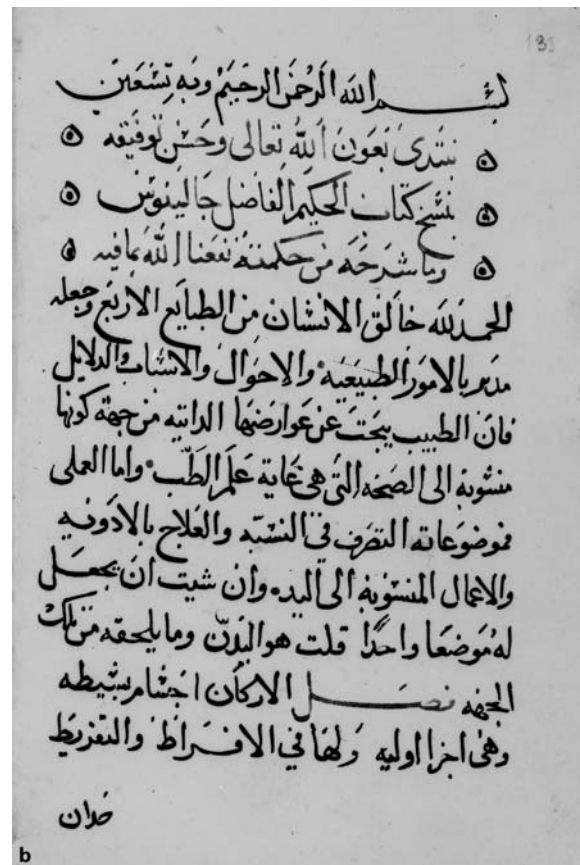 135
بسم الله الرحمن الرحيم وبه نستعين
نبتدي بعون الله تعالى وحسن توفيقه
نسخ كتاب الحكيم الفاضل جالينوس
وما شرحه من حكمته نفعنا الله بما فيه
الحمد لله خالق الانسان من الطبايع الاربع وجعله
مدبر بالامور الطبيعيه والاحوال والاسباب والدلايل
فان الطبيب يبحث عن عوارضها الداتيه من جهة كونها
منسوبه الى الصحه التي هي غايه علم الطب واما العملى
فموضوعاته التصرف في النسبه والعلاج بالادويه
والاعمال المنسوبه الى اليد وان شيت ان يجعل
له موضعا واحدا قلت هو البدن وما يلحقه من تلك
الجهه فصل الاركان اجسام بسيطه
وهى اجزا اوليه ولها في الافراط والتفريط
حدان
b